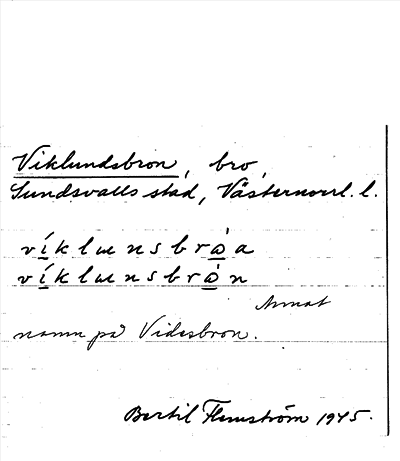 Viklundsbron, bro,
Sundsvalls stad, Västernorrl. l.
víklɯnsbrò̱a
víklɯnsbrò̱n
Annat
namn på Videsbron.
Bertil Flemström 1945.